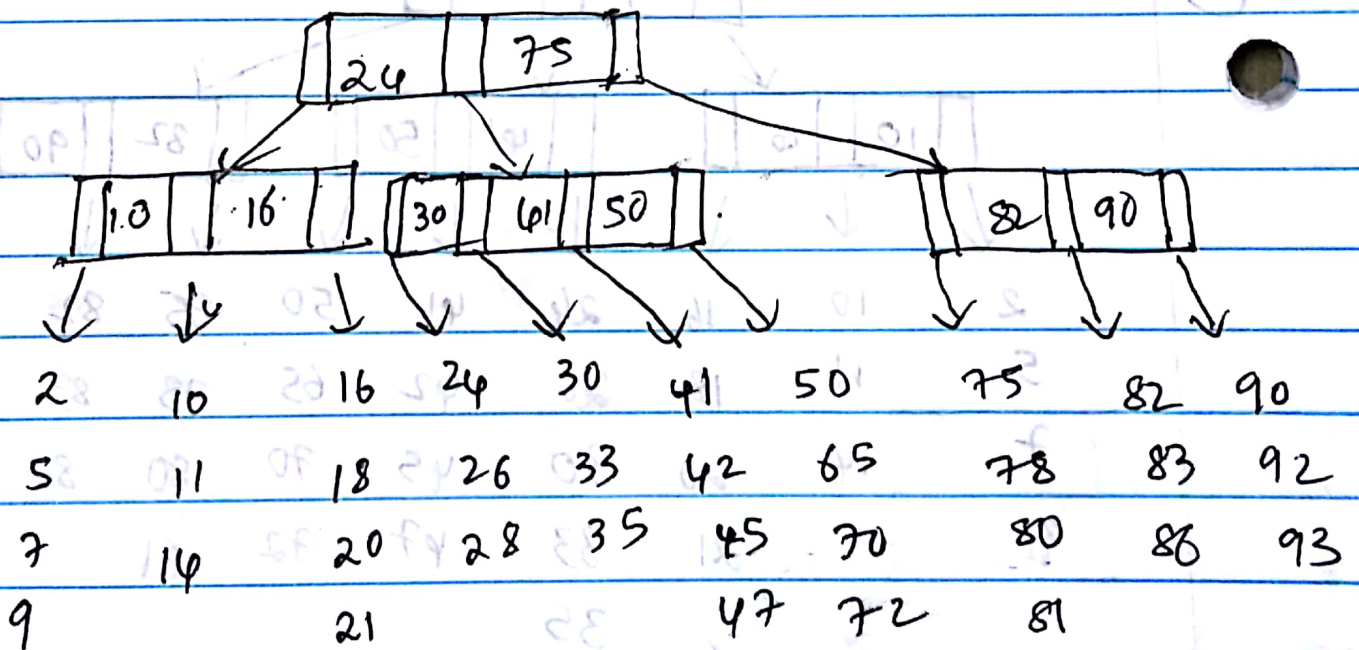 24 75
10 16 30 41 50 82 90
2 10 16 24 30 41 50 75 82 90
5 11 18 26 33 42 65 78 83 92
7 14 20 28 35 45 70 80 86 93
9 21 47 72 81